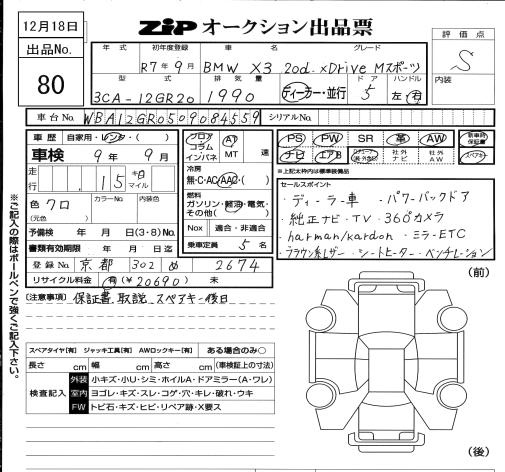 12月18日
ZIP オークション出品票
評価点
S
出品No.
80
年式 初年度登録 車名 グレード
R7年9月 BMW X3 20d.xDrive Mスポーツ
型式 排気量 ドア ハンドル
3CA-12GR20 1990 ディーラー・並行 5 左・右
内装
車台No. WBA12GR0509084559 シリアルNo.
車歴 自家用・レンタ・( )
車検 9年 9月
走行 .15 キロ マイル
色 クロ
(元色)
カラーNo. 内装色
予備検 年 月 日(3・8)No.
書類有効期限 年 月 日迄
登録No. 京都 302 め 2674
リサイクル料金 有(¥20690) 未
フロア
コラム
インパネ
AT
MT 速
冷房
無・C・AC・AAC・( )
燃料
ガソリン・軽油・電気・
その他( )
Nox 適合・非適合
乗車定員 5 名
PS PW SR 革 AW 新車時保証書
ナビ エアB 社外ナビ 社外AW スペアキー
※上記太枠内は標準装備品
セールスポイント
・ディーラー車 ・パワーバックドア
・純正ナビ・TV・36°カメラ
・harman/kardon・ミラーETC
・ブラウン系レザー・シートヒーター・ベンチレーション
[注意事項] 保証書、取説、スペアキー後日
スペアタイヤ[有] ジャッキ工具[有] AWロックキー[有] ある場合のみ○
長さ cm 幅 cm 高さ cm (車検証上の寸法)
検査記入
外装 小キズ・小U・シミ・ホイルA・ドアミラー(A・ワレ)
室内 ヨゴレ・キズ・スレ・コゲ・穴・キレ・破れ・ウキ
FW トビ石・キズ・ヒビ・リペア跡・X要ス
(前)
(後)
※ご記入の際はボールペンで強くご記入下さい。